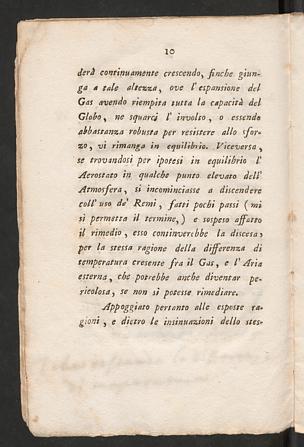 10
derà continuamente crescendo, finche giun-
ga a tale altezza, ove l'espansione del
Gas avendo riempita tutta la capacità del
Globo, ne squarci l'involto, o essendo
abbastanza robusta per resistere allo sfor-
zo, vi rimanga in equilibrio. Viceversa,
se trovandosi per ipotesi in equilibrio l'
Aerostato in qualche punto elevato dell'
Atmosfera, si incominciasse a discendere
coll'uso de' Remi, fatti pochi passi (mi
si permetta il termine,) e sospeso affatto
il rimedio, esso continverebbe la discesa;
per la stessa ragione della differenza di
temperatura cresente fra il Gas, e l'Aria
esterna, che potrebbe anche diventar pe-
ricolosa, se non si potesse rimediare.
Appoggiato pertanto alle esposte ra-
gioni, e dietro le insinuazioni dello stes-